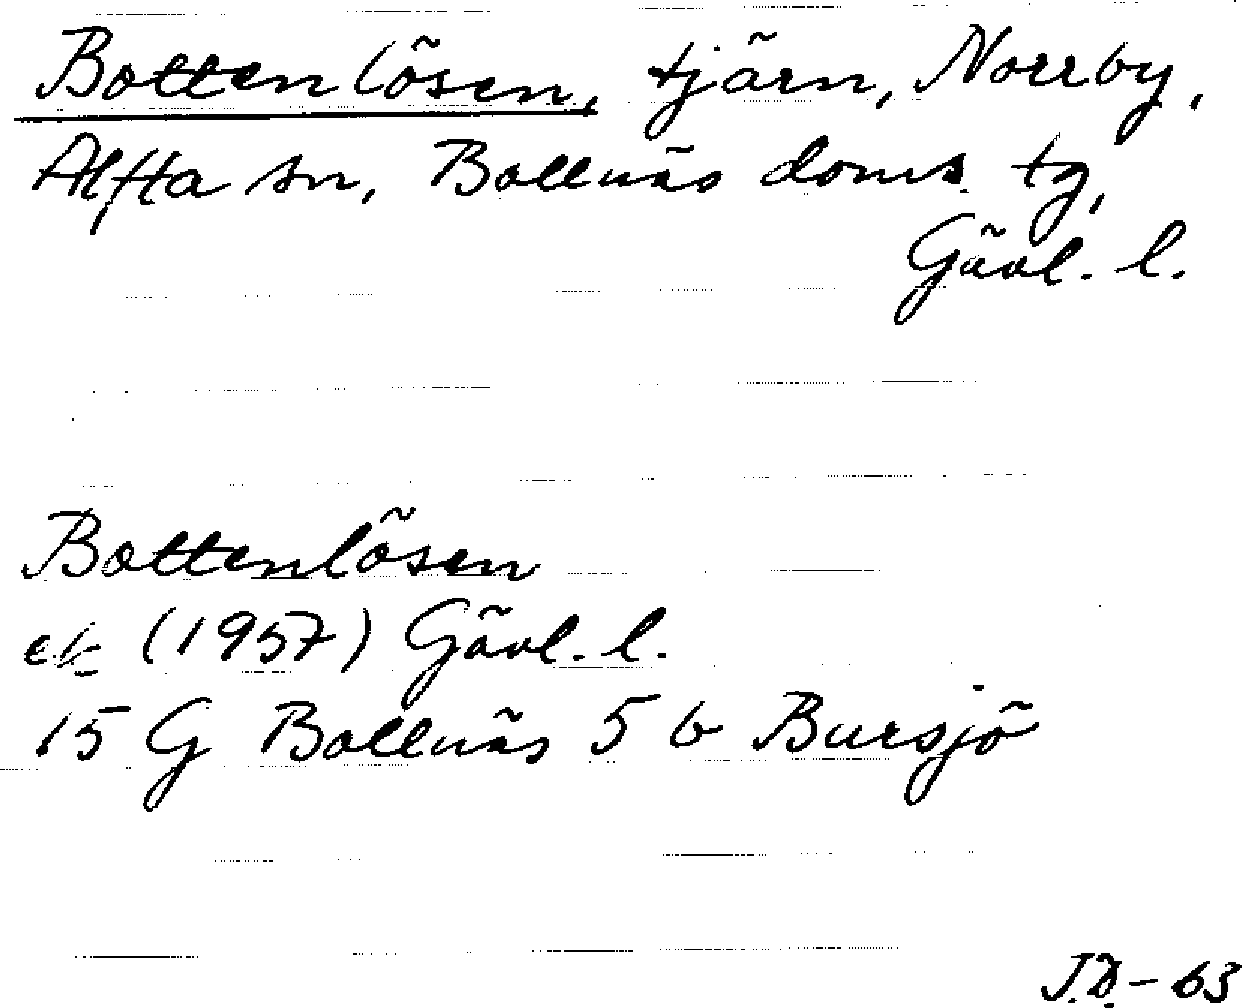 Bottenlösen, tjärn, Norrby,
Alfta sn, Bollnäs doms. tg,
Gävl. l.
Bottenlösen
ek (1957) Gävl. l.
15 G Bollnäs 5 b Bursjö
J.D-63